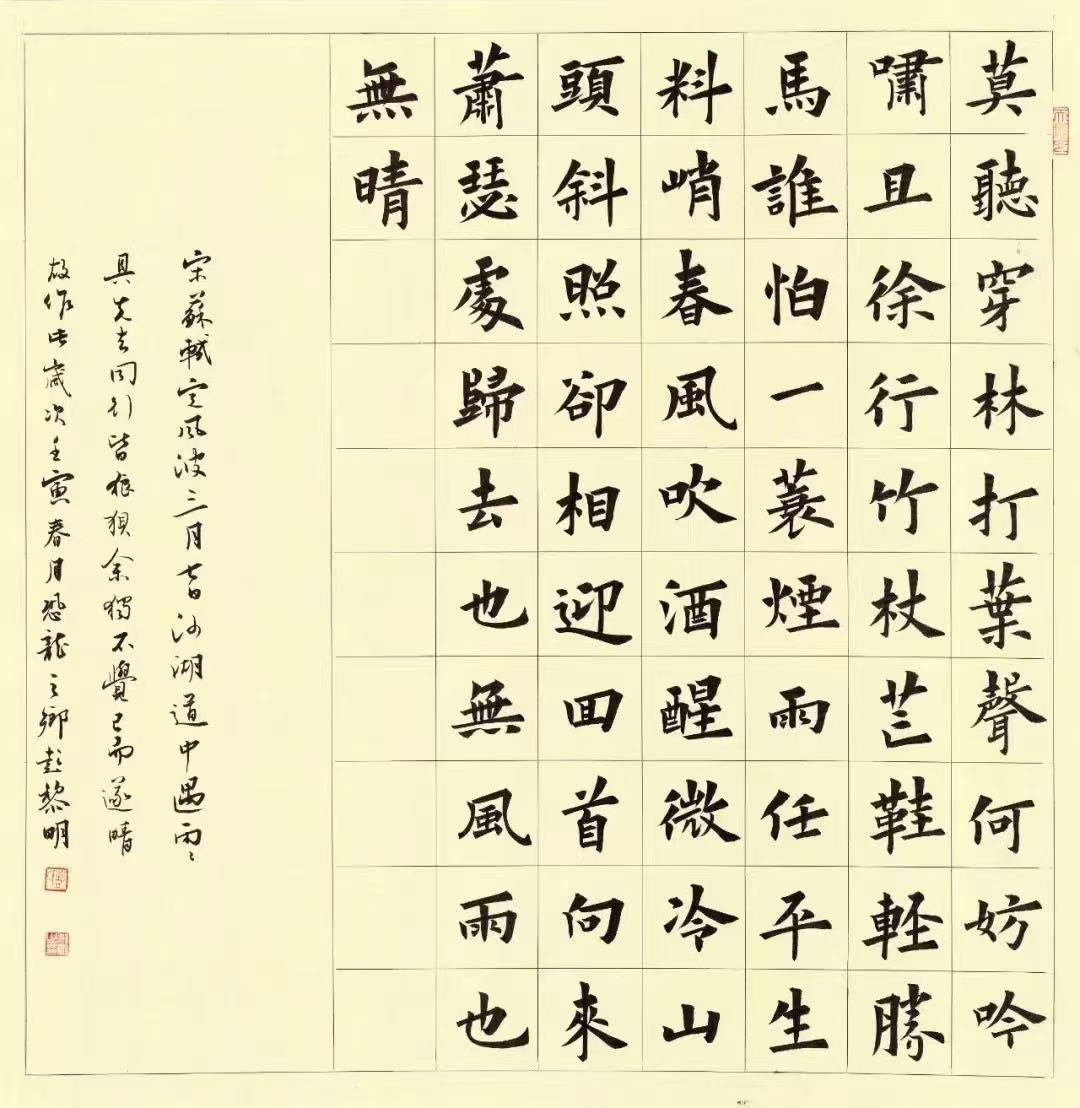 莫聽穿林打葉聲何妨吟
嘯且徐行竹杖芒鞋輕勝
馬誰怕一蓑煙雨任平生
料峭春風吹酒醒微冷山
頭斜照卻相迎回首向來
蕭瑟處歸去也無風雨也
無晴
宋蘇軾定風波三月七日沙湖道中遇雨〻
具先去同行皆狼狽余獨不覺已而遂晴
故作此歲次壬寅春月恐龍之鄉彭黎明